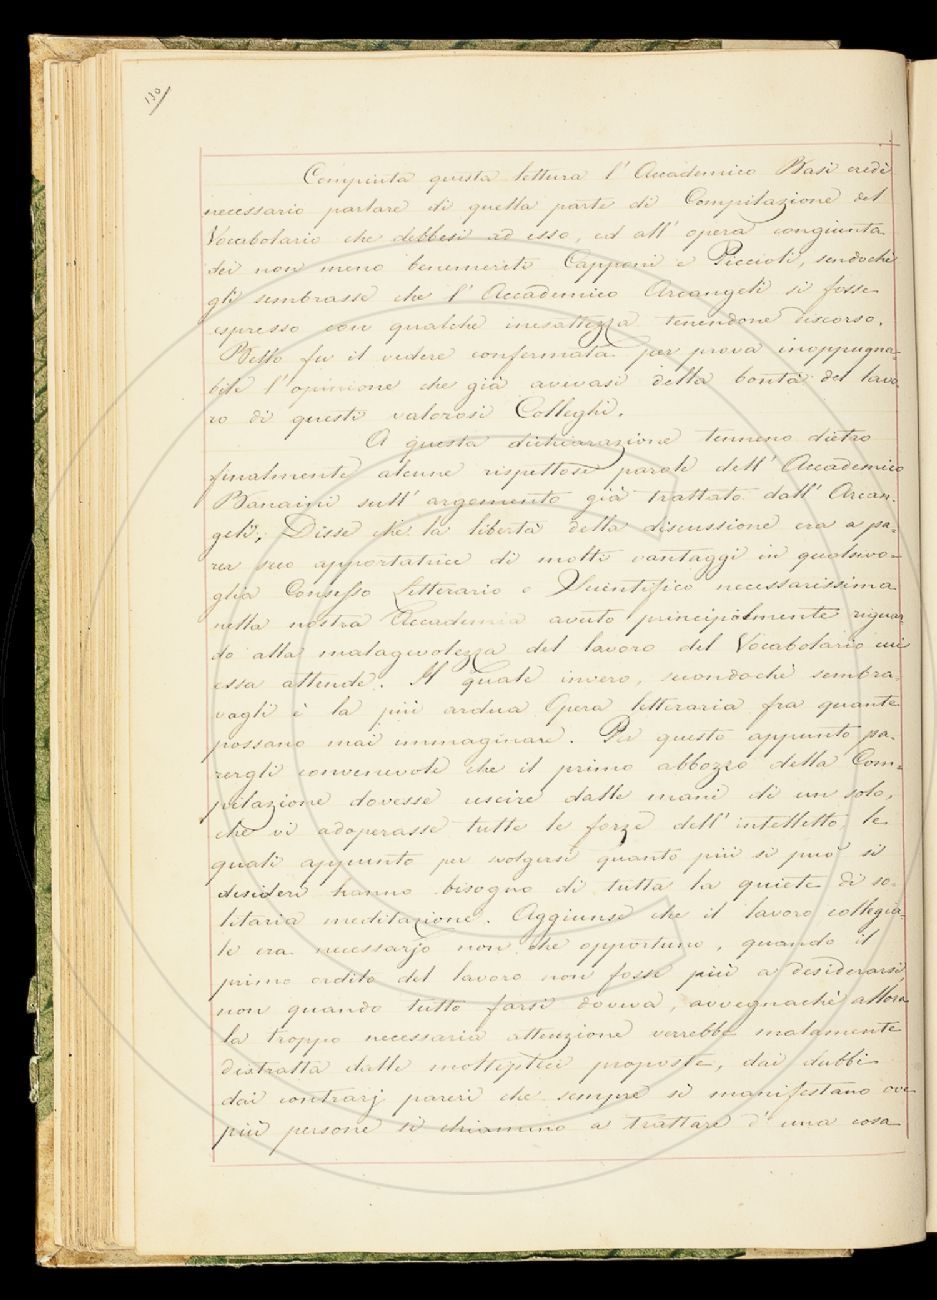 130
Compiuta questa lettura l' Accademico Basi credè
necessario parlare di quella parte di Compilazione del
Vocabolario che debbesi ad esso, ed all' opera congiunta
dei non meno benemeriti Capponi e Piccioli, sendochè
gli sembrasse che l' Accademico Arcangeli si fosse
espresso con qualche inesattezza tenendone discorso.
Bello fu il vedere confermata per prova inoppugna-
bile l' opinione che già avevasi della bontà del lavo-
ro di questi valorosi Colleghi.
A questa dichiarazione tennero dietro
finalmente alcune rispettose parole dell' Accademico
Banaini sull' argomento già trattato dall' Arcan-
geli, Disse che la libertà della discussione era a pa-
rer suo apportatrice di molti vantaggi in qualsivo-
glia Consesso Letterario e Scientifico necessarissima
nella nostra Accademia avuto principalmente riguar-
do alla malagevolezza del lavoro del Vocabolario cui
essa attende. Il quale invero, secondochè sembra-
vagli è la più ardua Opera letteraria fra quante
possano mai immaginare. Per questo appunto pa-
rergli convenevole che il primo abbozzo della Com-
pilazione dovesse uscire dalle mani di un solo,
che vi adoperasse tutte le forze dell' intelletto, le
quali appunto per svolgersi quanto più si può si
desideri hanno bisogno di tutta la quiete di so-
litaria meditazione. Aggiunse che il lavoro collegia-
le era necessarjo non che opportuno, quando il
primo ordito del lavoro non fosse più a desiderarsi
non quando tutto farsi doveva, avvegnachè allora
la troppo necessaria attenzione verrebbe malamente
distratta dalle molteplici proposte, dai dubbi
dai contrarj pareri che sempre si manifestano ove
più persone si chiamino a trattare d' una cosa